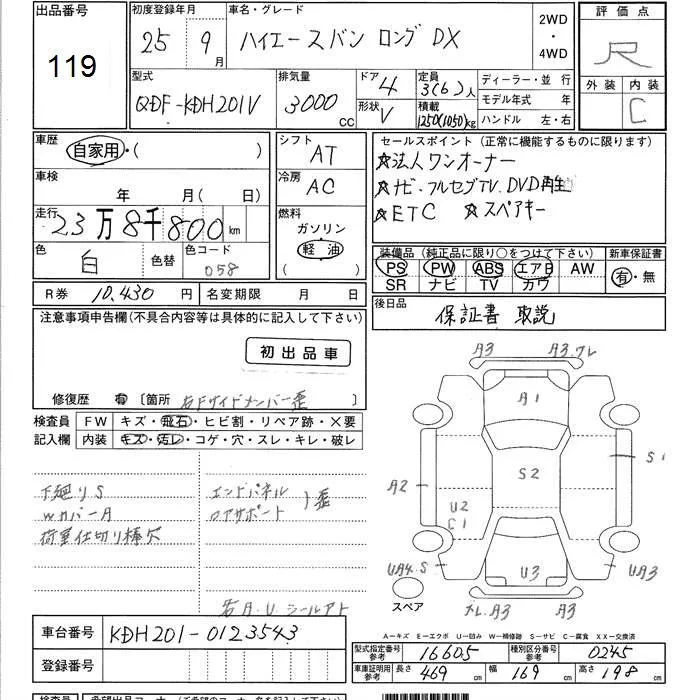 出品番号
119
初度登録年月
25年 9月
車名・グレード
ハイエースバン ロング DX
2WD
・
4WD
評価点
R
外装 内装
C
型式
QDF-KDH201V
排気量
3000 CC
ドア 4
形状 V
定員 3(6)人
積載 1250(1050)kg
ディーラー・並行
モデル年式 年
ハンドル 左・右
車歴
自家用・( )
シフト
AT
車検
年 月( 日)
冷房
AC
走行
23万8千800km
燃料
ガソリン
軽油
( )
色
白
色替
色コード
058
R券 10,430円
名変期限 月 日
セールスポイント(正常に機能するものに限ります)
☆法人ワンオーナー
☆ナビ・フルセグTV、DVD再生
☆ETC ☆スペアキー
装備品(純正品に限り○をつけて下さい)
PS PW ABS エアB AW
SR ナビ TV カワ
新車保証書
有・無
後日品
保証書 取説
注意事項申告欄(不具合内容等は具体的に記入して下さい)
初出品車
修復歴 有 〔箇所 右Fサイドメンバー歪 〕
検査員
記入欄
FW キズ・飛石・ヒビ割・リペア跡・×要
内装 キズ・汚レ・コゲ・穴・スレ・キレ・破レ
下廻りS
Wカバー A
荷室仕切り棒欠
エンドパネル
ロアサポート
歪
A3 A3.ワレ
A1
S2
S1
A2
U2
C1
U3
UA4.S
UA3
A3
A3
スペア
A-キズ E-エクボ U-凹み W-補修跡 S-サビ C-腐食 XX-交換済
車台番号
KDH201-0123543
登録番号
型式指定番号 参考 16605
種別区分番号 参考 0245
車庫証明用 参考
長さ 469cm
幅 169cm
高さ 198cm
検査員